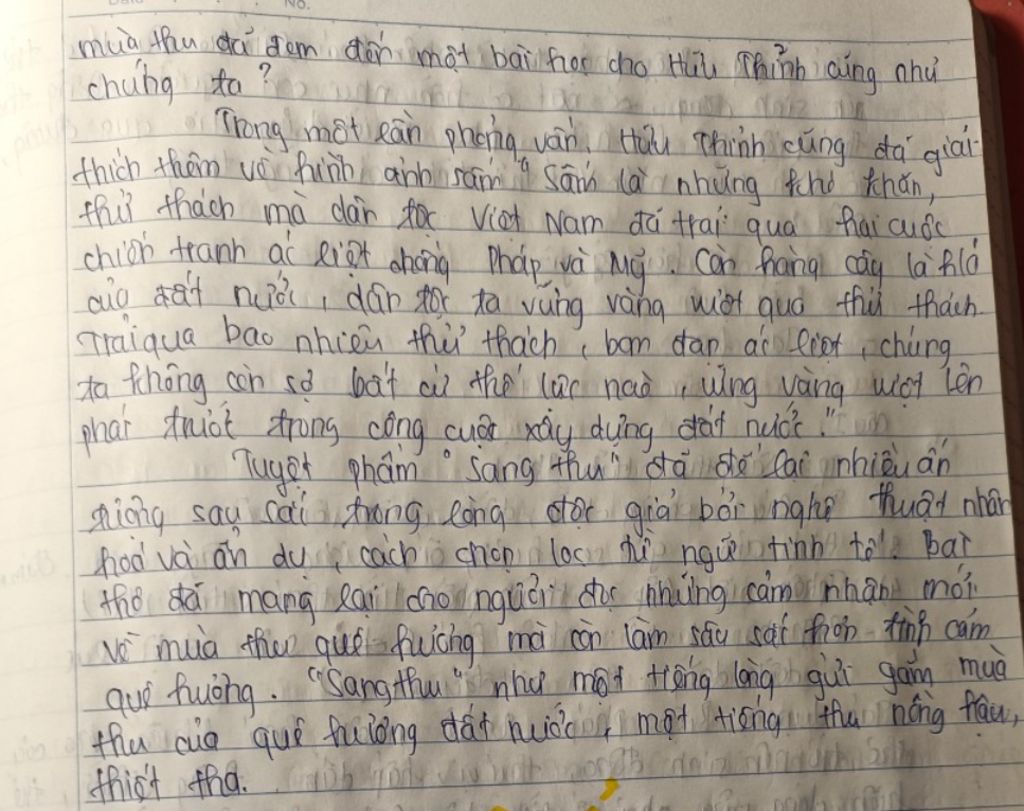 mùa thu đã đem đến một bài học cho Hữu Thỉnh cũng như
chúng ta?
Trong một lần phỏng vấn, Hữu Thỉnh cũng đã giải
thích thêm về hình ảnh sấm "Sấm là những khó khăn,
thử thách mà dân tộc Việt Nam đã trải qua hai cuộc
chiến tranh ác liệt chống Pháp và Mỹ. Còn hàng cây là h/ả
của đất nước, dân tộc ta vững vàng vượt qua thử thách.
Trải qua bao nhiêu thử thách, bom đạn ác liệt, chúng
ta không còn sợ bất cứ thế lực nào, vững vàng vượt lên
phát triển trong công cuộc xây dựng đất nước."
Tuyệt phẩm "Sang thu" đã để lại nhiều ấn
tượng sâu sắc trong lòng độc giả bởi nghệ thuật nhân
hoá và ẩn dụ, cách chọn lọc từ ngữ tinh tế. Bài
thơ đã mang lại cho người đọc những cảm nhận mới
về mùa thu quê hương mà còn làm sâu sắc hơn tình cảm
quê hương. "Sang thu" như một tiếng lòng gửi gắm mùa
thu của quê hương đất nước, một tiếng thu nồng hậu,
thiết tha.